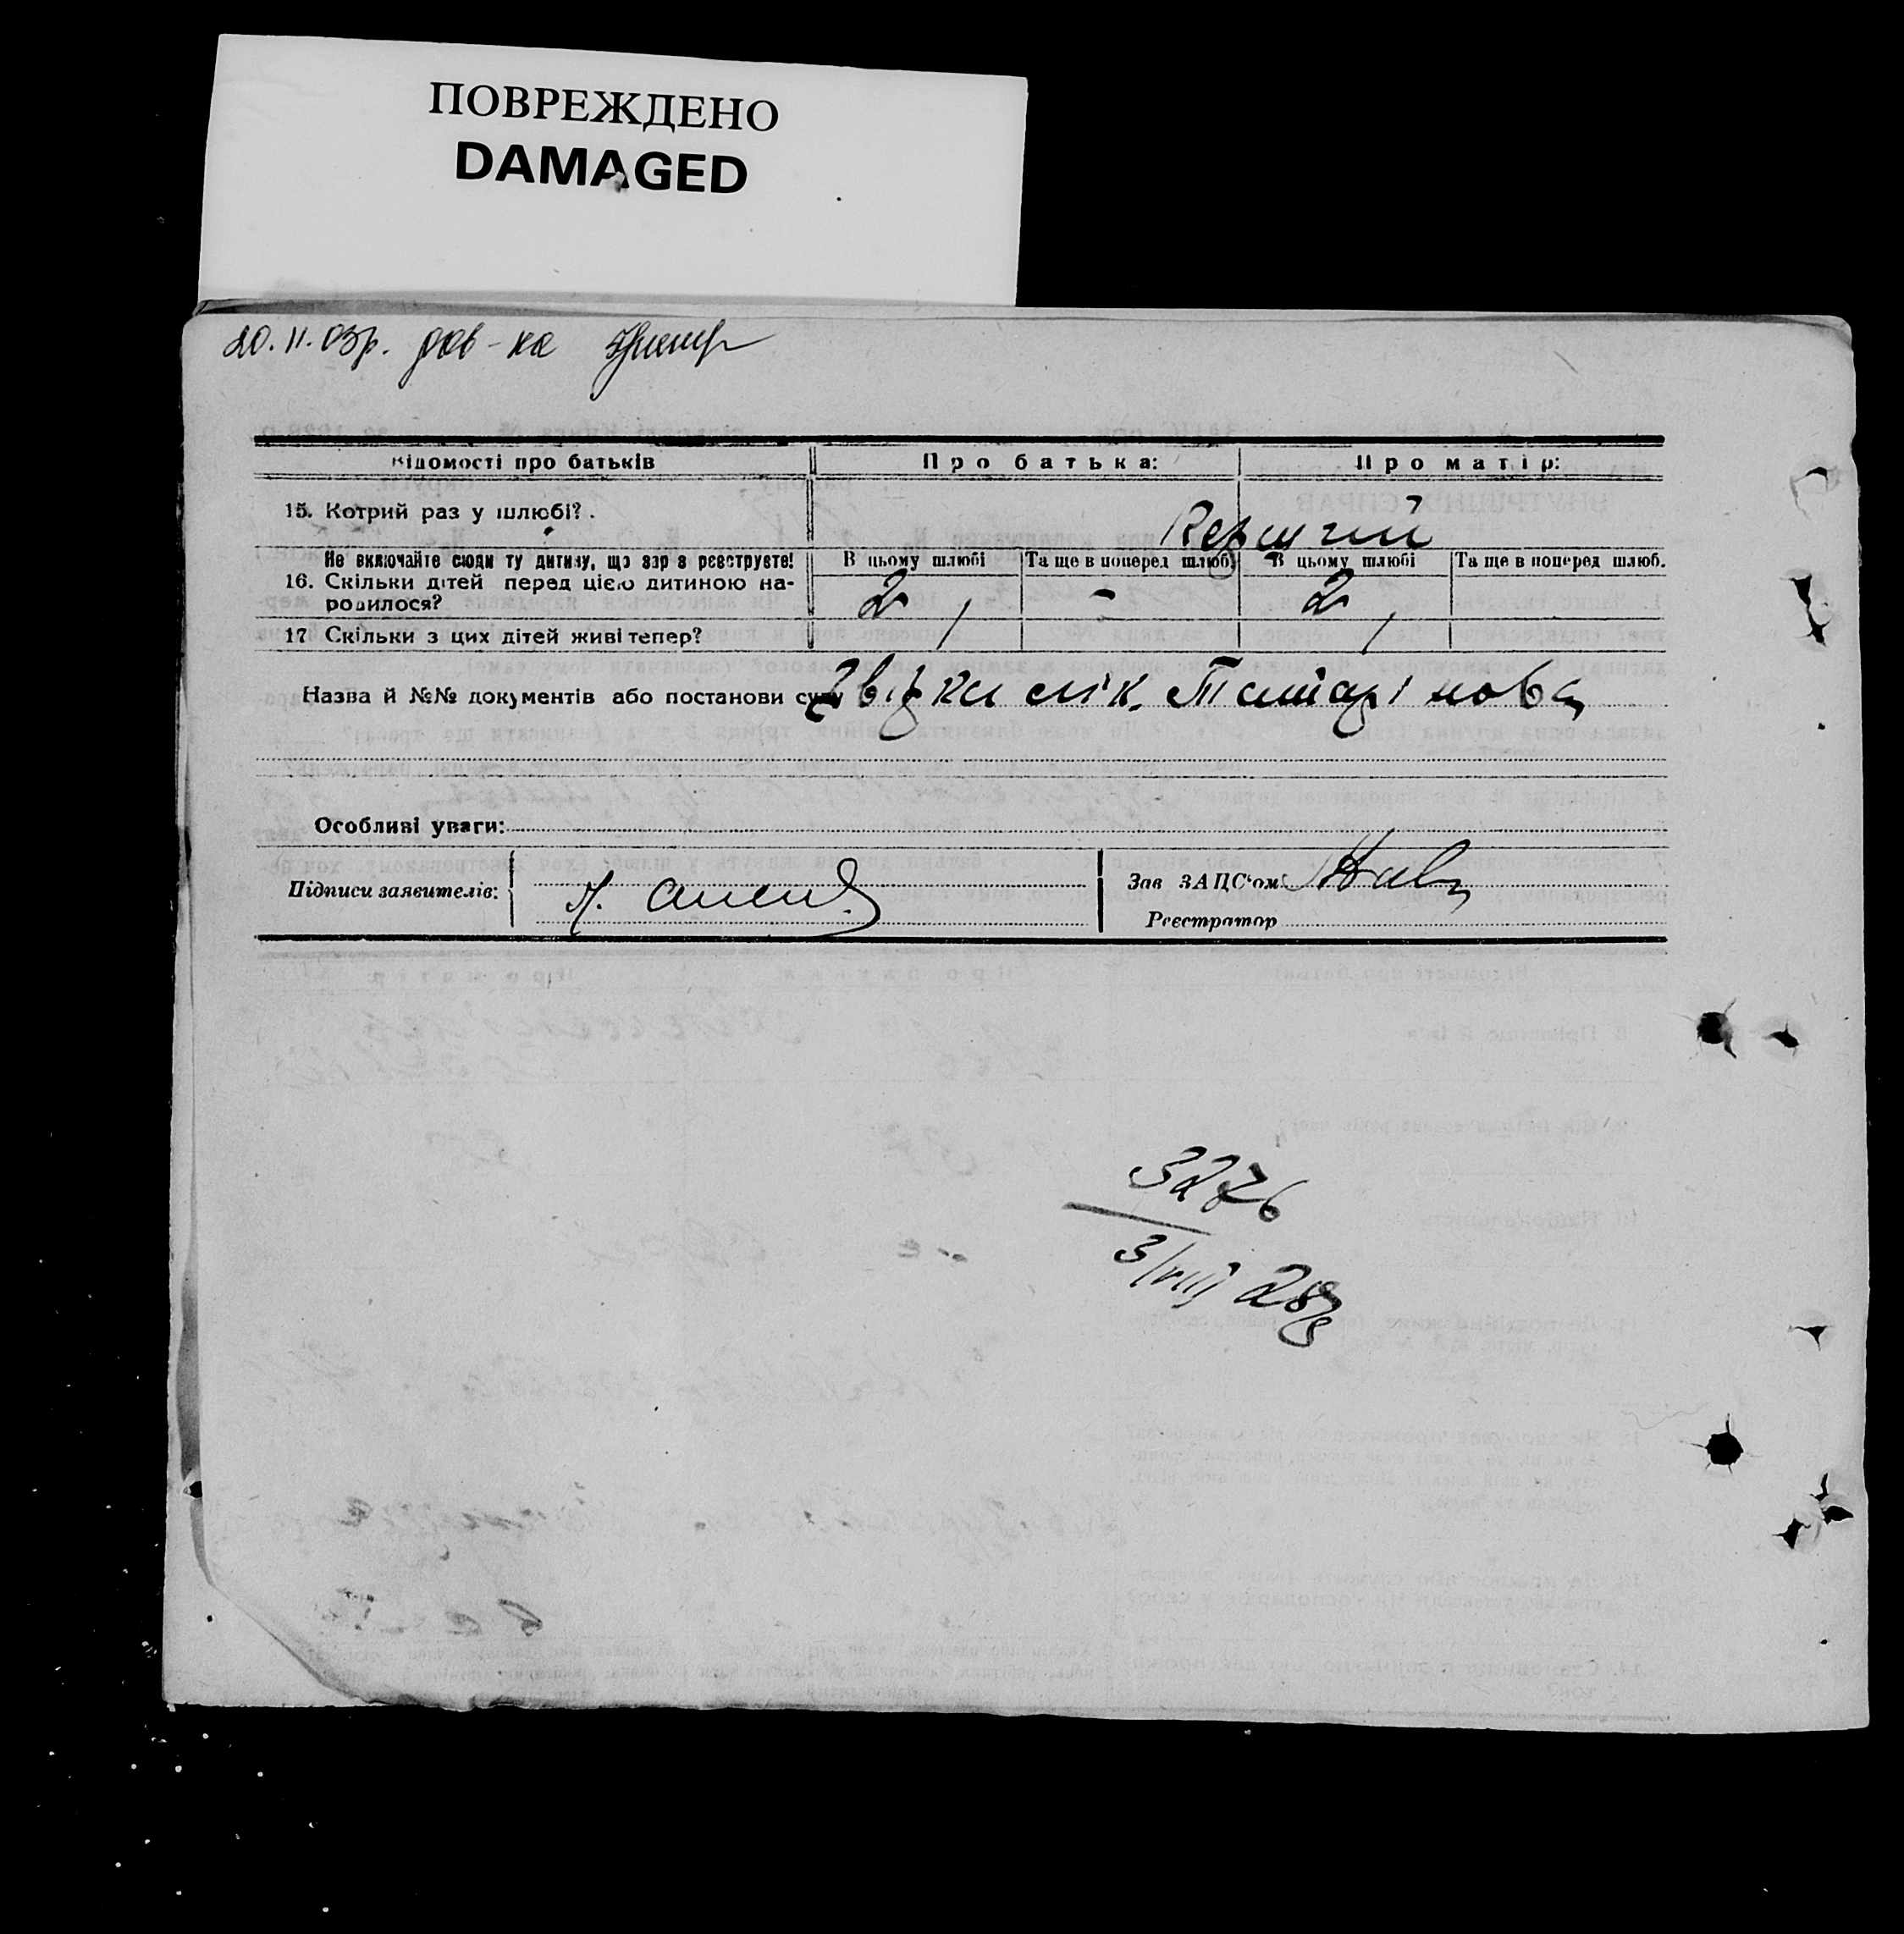 ПОВРЕЖДЕНО
DAMAGED
20.11.03р. дов-ка
Відомості про батьків Про батька: Про матір:
15. Котрий раз у шлюбі?. Первий
Не включайте сюди ту дитину, що зараз реєструєте! В цьому шлюбі Та ще в поперед шлюб. В цьому шлюбі Та ще в поперед шлюб.
16. Скільки дітей перед цією дитиною на-
родилося? 2 - 2
17. Скільки з цих дітей живі тепер? 1 1
Назва й №№ документів або постанови суду
Особливі уваги:
Підписи заявителів: Зав ЗАЦС'ом:
Реєстратор
3276
3/VIII 28р